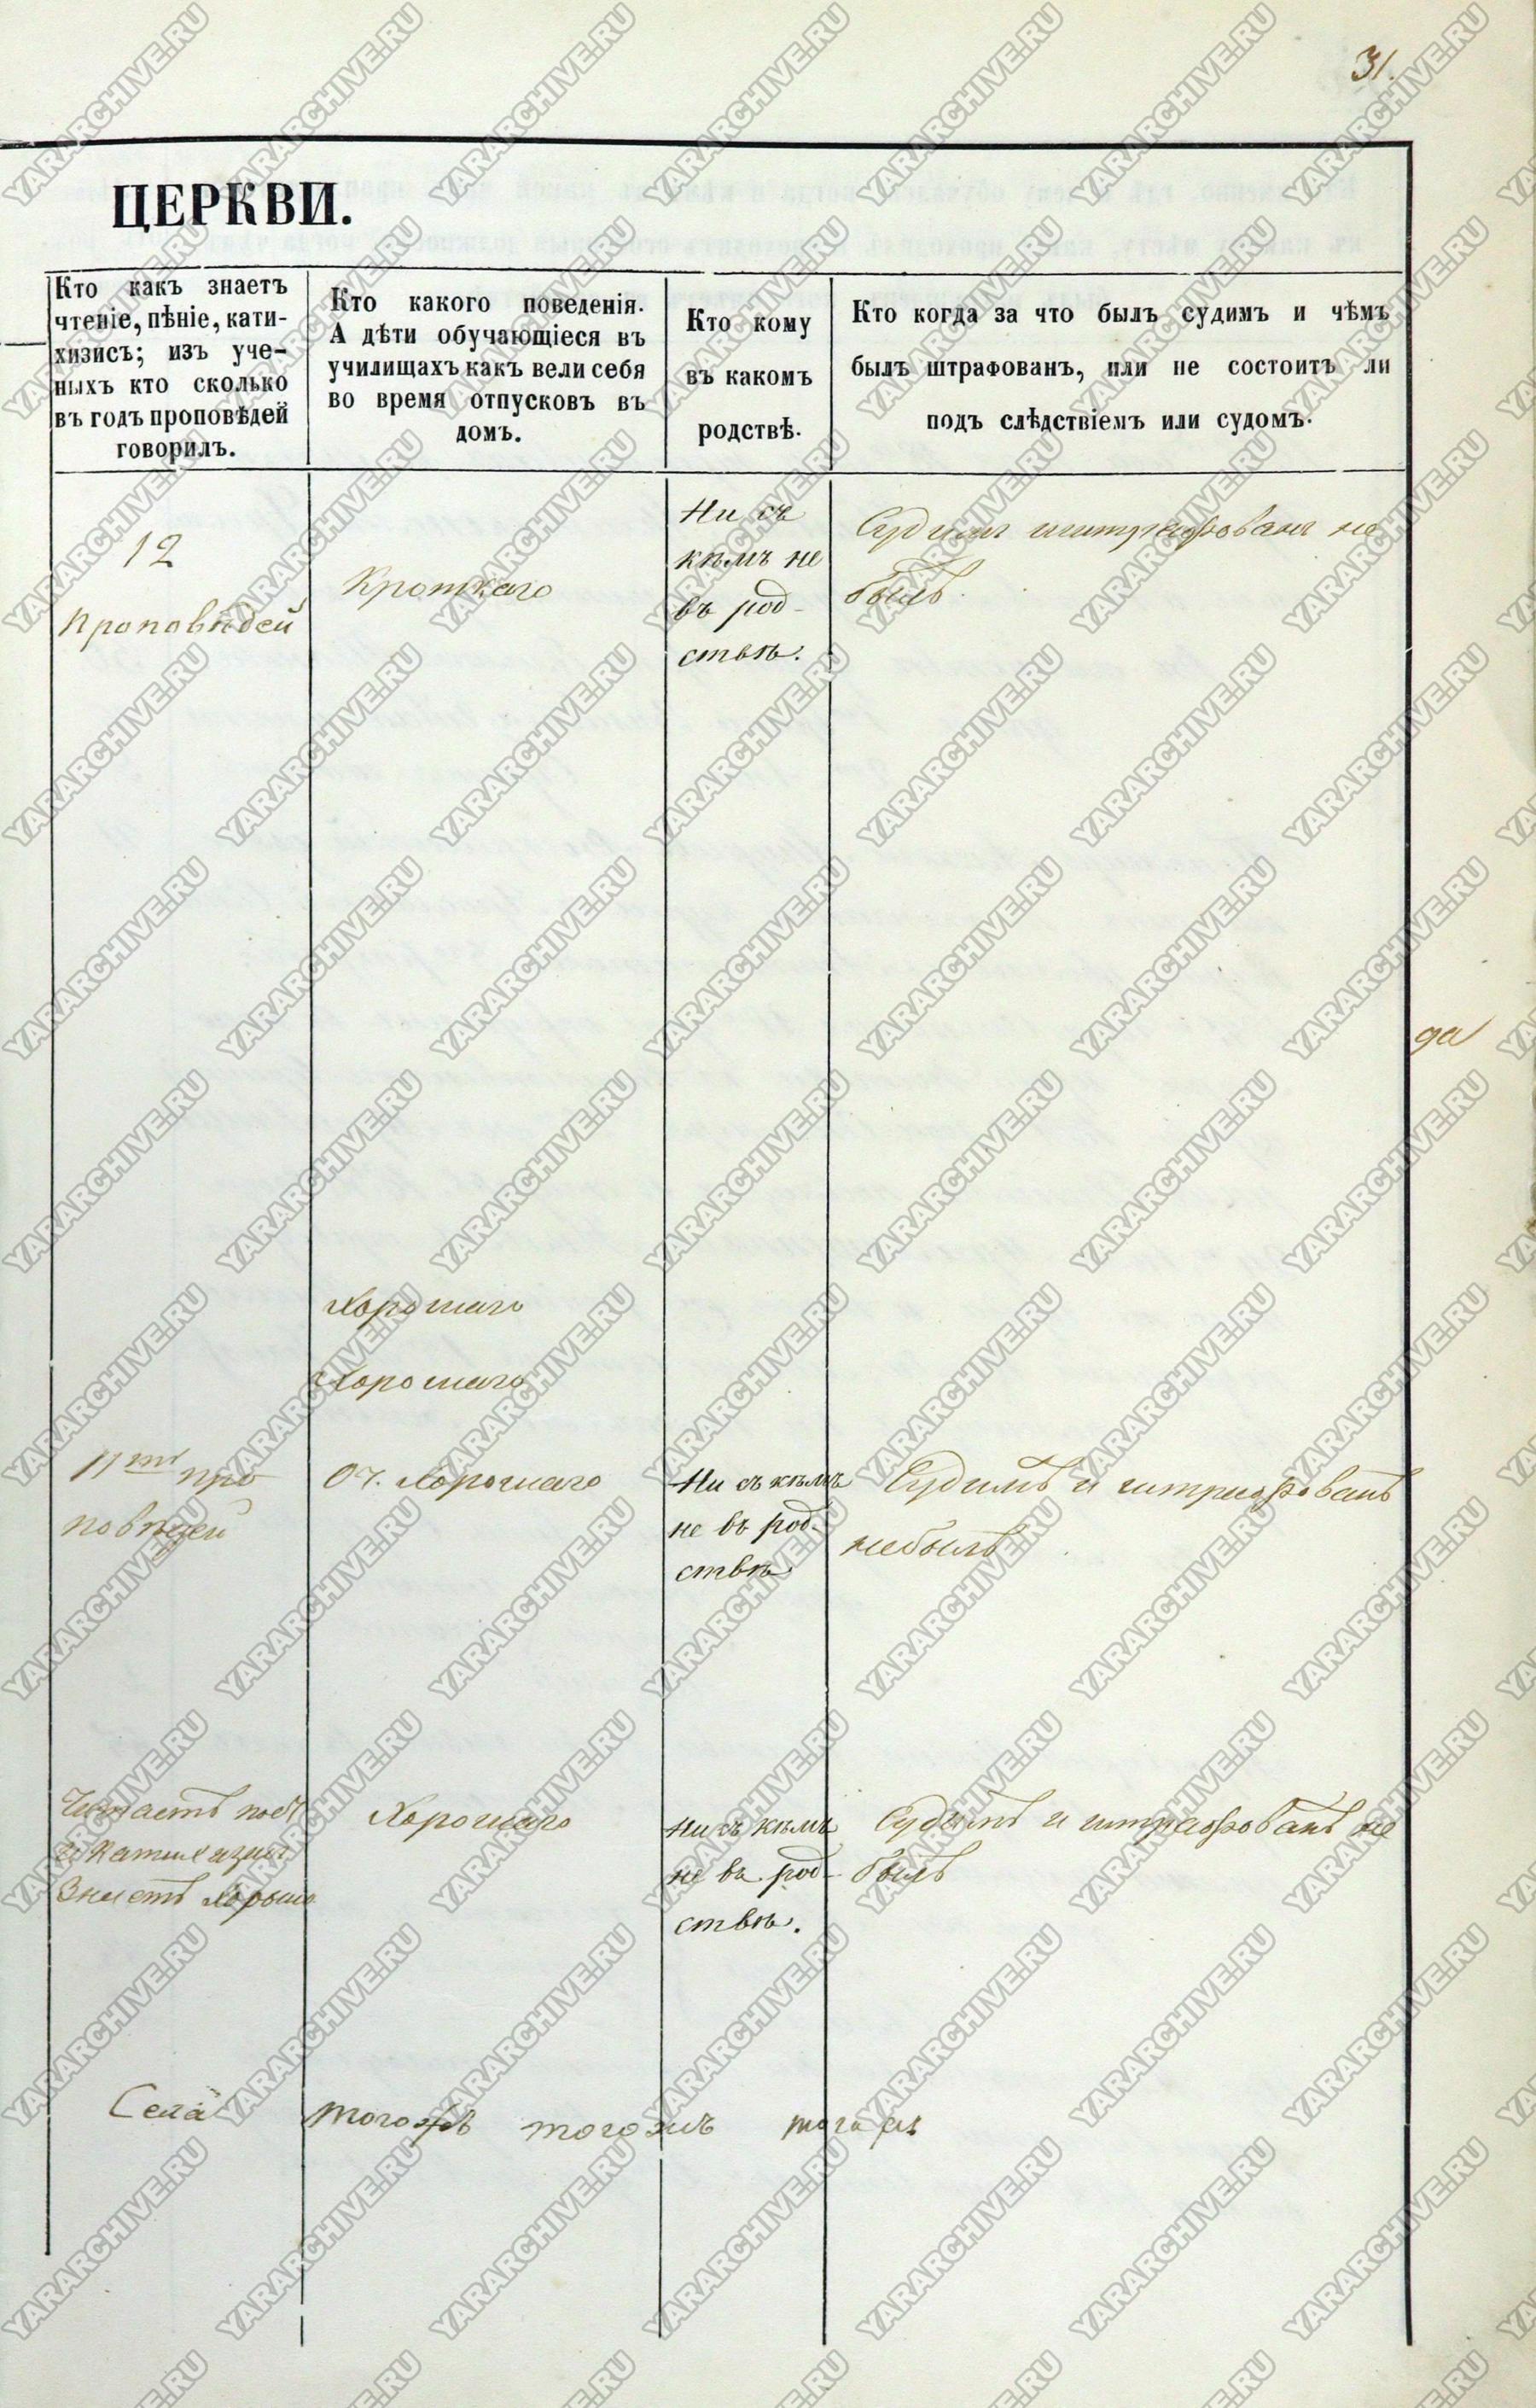 31.
ЦЕРКВИ.
Кто какъ знаетъ
чтеніе, пѣніе, кати-
хизисъ; изъ уче-
ныхъ кто сколько
въ годъ проповѣдей
говорилъ.
Кто какого поведенія.
А дѣти обучающіеся въ
училищахъ какъ вели себя
во время отпусковъ въ
домъ.
Кто кому
въ какомъ
родствѣ.
Кто когда за что былъ судимъ и чѣмъ
былъ штрафованъ, или не состоитъ ли
подъ слѣдствіемъ или судомъ.
12
проповѣдей
Кроткаго
Ни съ
кѣмъ не
въ род-
ствѣ.
Судимъ штрафованъ не
былъ.
да
Хорошаго
Хорошаго
11ть про
повѣдей
Оч. хорошаго
Ни съ кѣмъ
не въ род-
ствѣ
Судимъ и штрафованъ
небылъ
Читаетъ поетъ
и Катихизисъ
Знаетъ Хорошо
Хорошаго
Ни съ кѣмъ
не въ род-
ствѣ.
Судимъ и штрафованъ не
былъ
Села тогожъ тогожъ
YARARCHIVE.RU